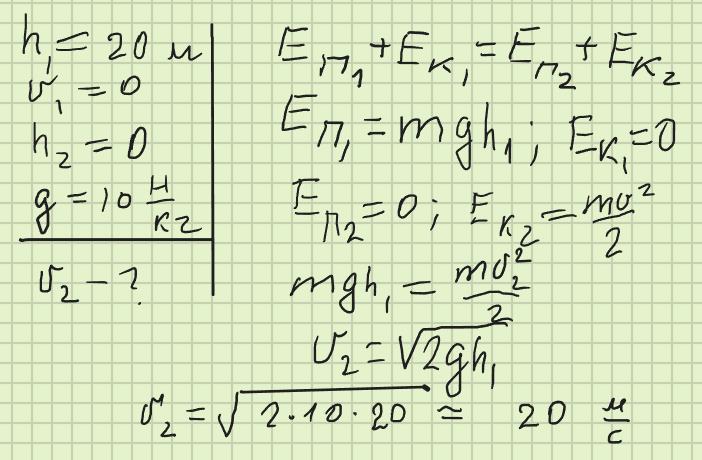 h₁ = 20 м
v₁ = 0
h₂ = 0
g = 10 Н/кг
v₂ - ?
Eп₁ + Eк₁ = Eп₂ + Eк₂
Eп₁ = mgh₁; Eк₁ = 0
Eп₂ = 0; Eк₂ = mv²/2
mgh₁ = mv₂²/2
v₂ = √2gh₁
v₂ = √2·10·20 ≃ 20 м/с